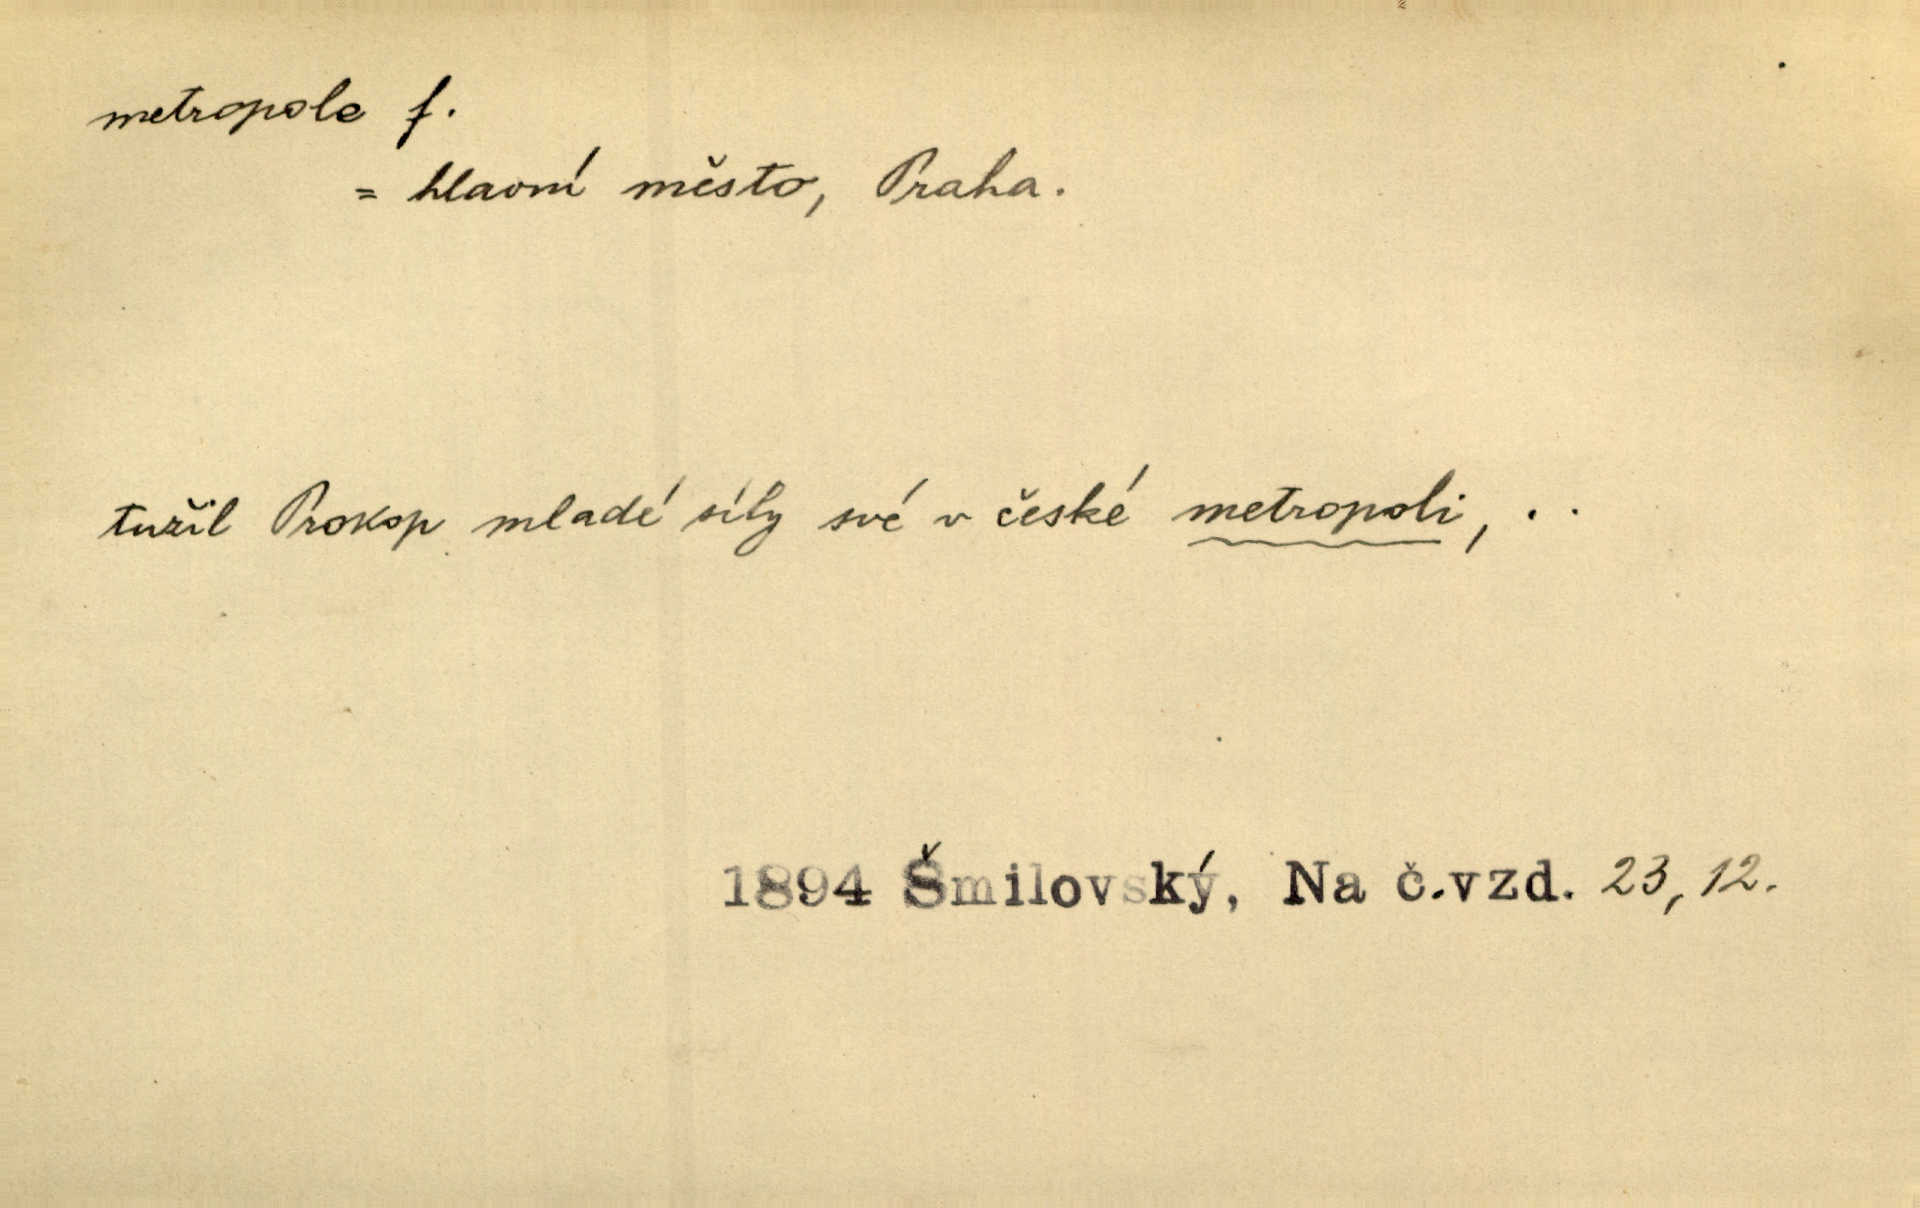 metropole f.
= hlavní město, Praha.
tužil Prokop mladé síly své v české metropoli, . .
1894 Šmilovský, Na č.vzd. 23, 12.